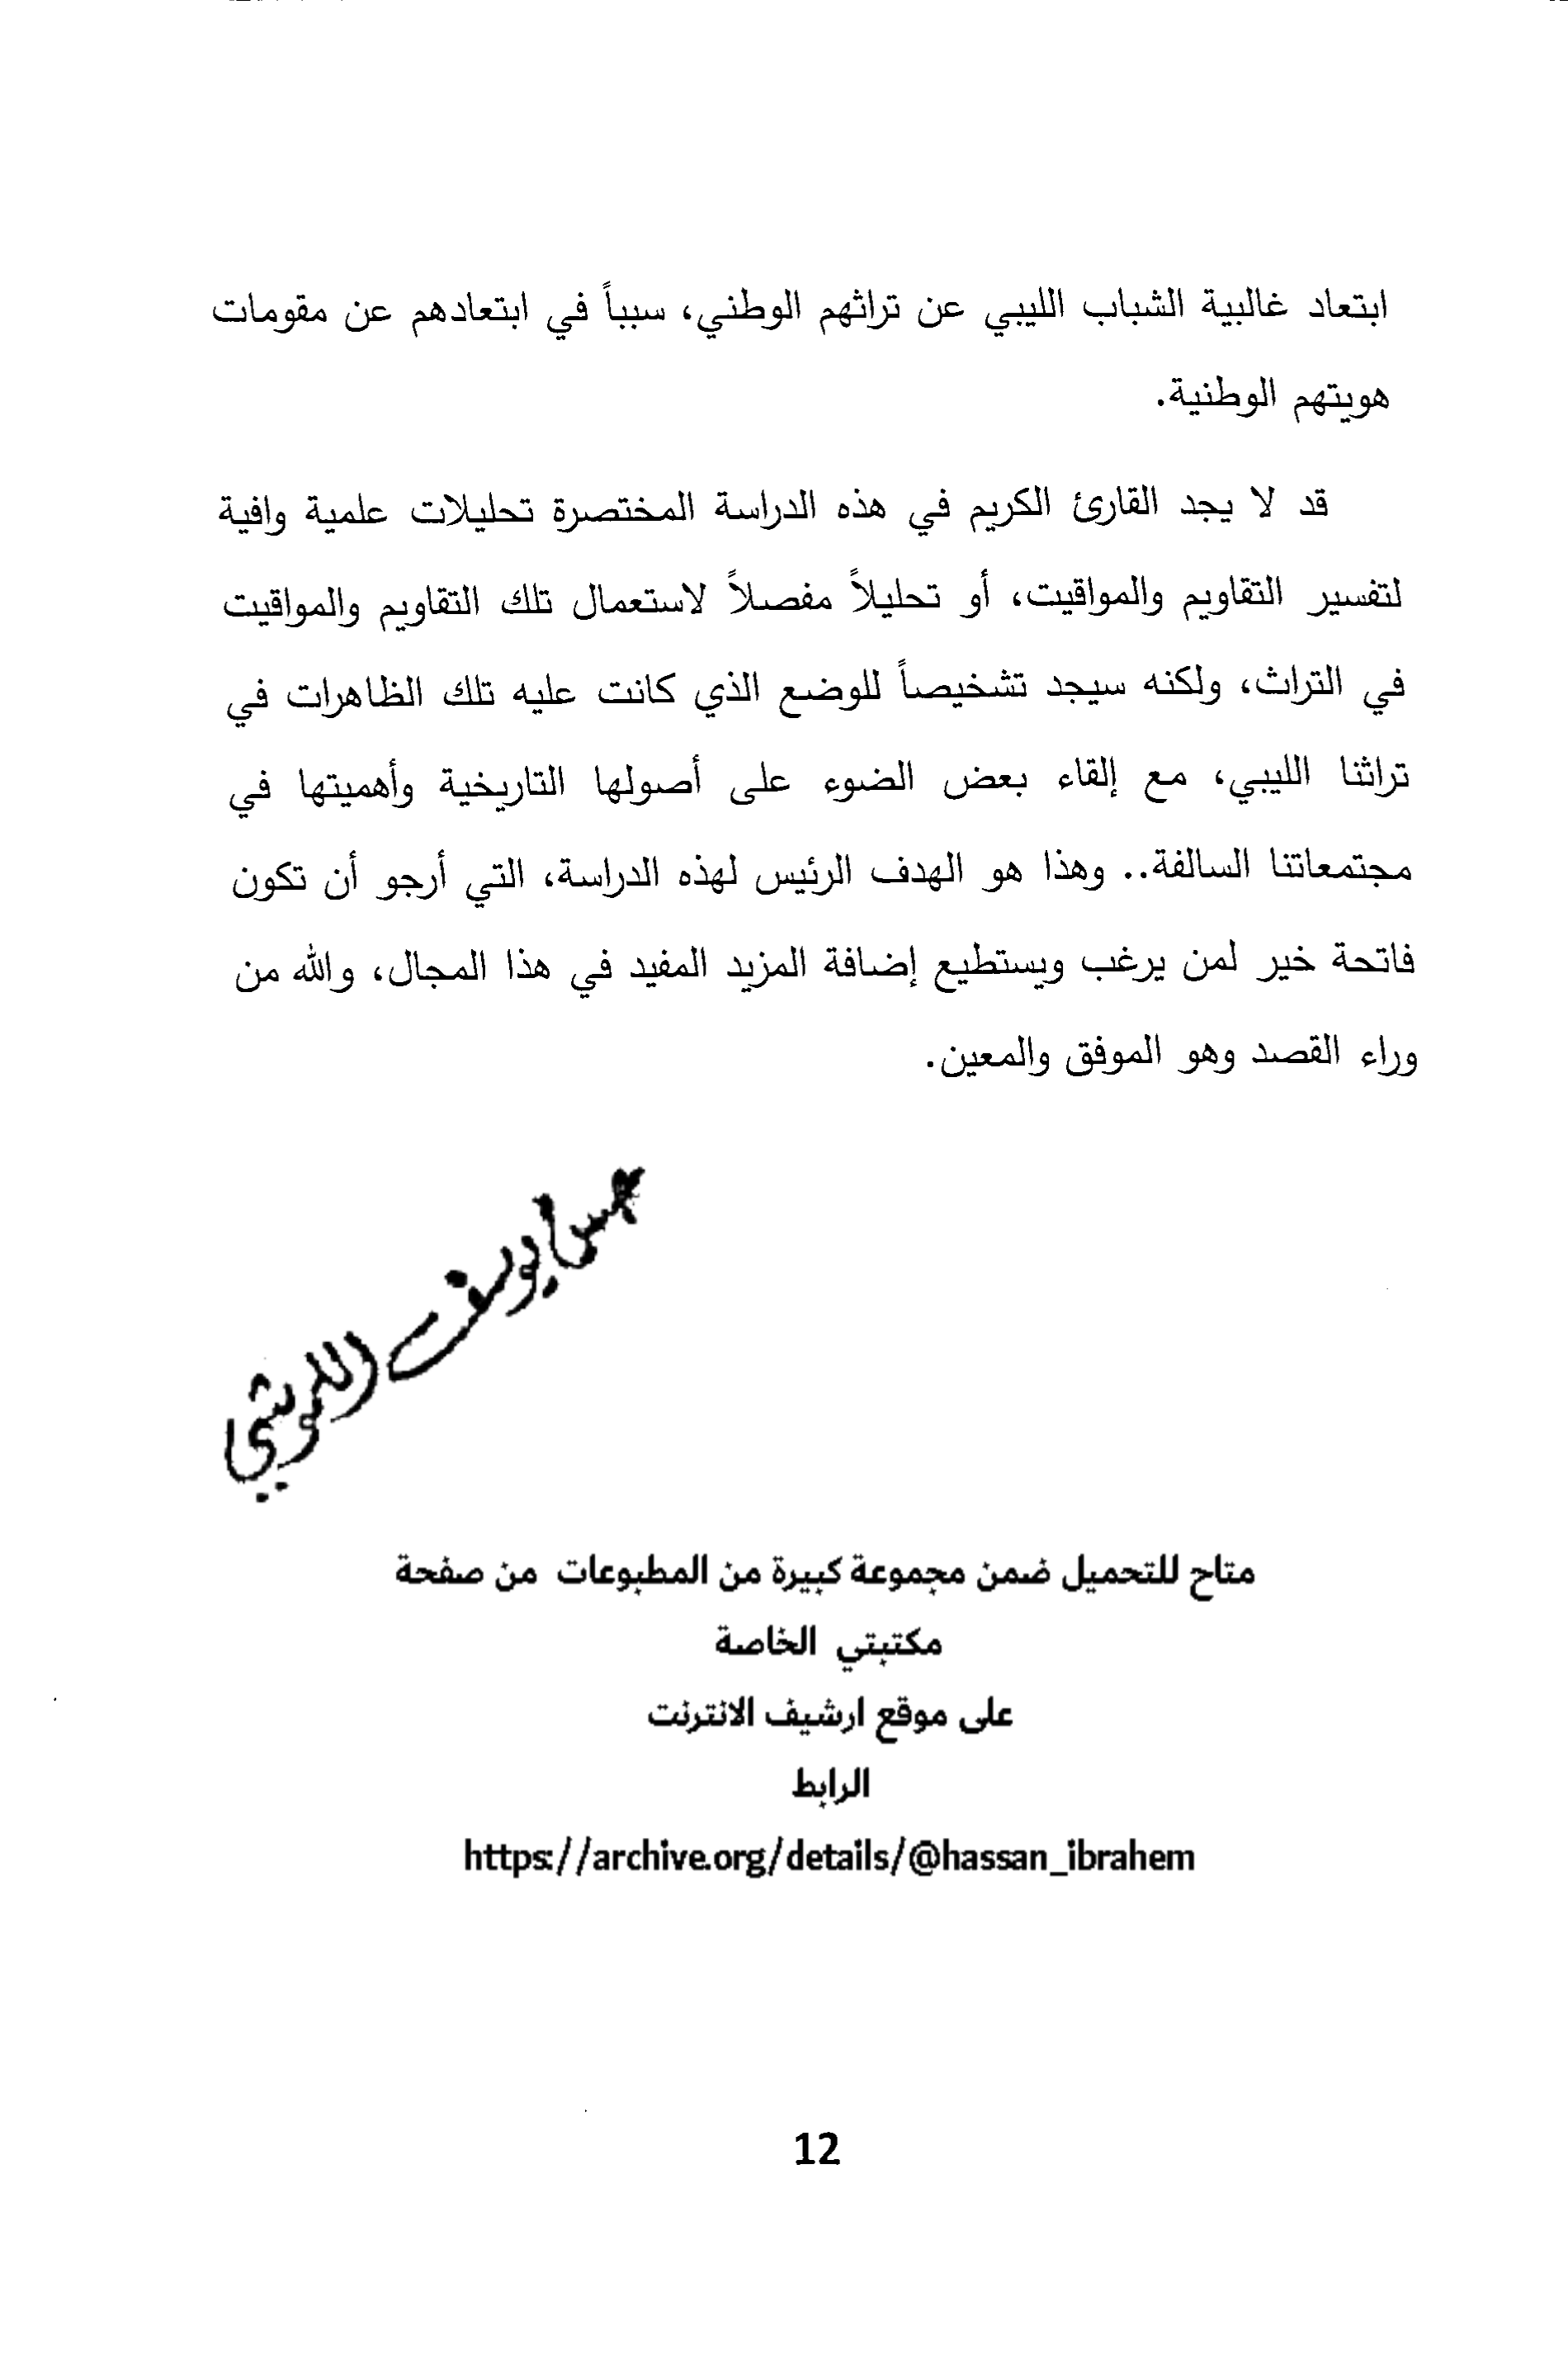 ابتعاد غالبية الشباب الليبي عن تراثهم الوطني، سبباً في ابتعادهم عن مقومات
هويتهم الوطنية.
قد لا يجد القارئ الكريم في هذه الدراسة المختصرة تحليلات علمية وافية
لتفسير التقاويم والمواقيت، أو تحليلاً مفصلاً لاستعمال تلك التقاويم والمواقيت
في التراث، ولكنه سيجد تشخيصاً للوضع الذي كانت عليه تلك الظاهرات في
تراثنا الليبي، مع إلقاء بعض الضوء على أصولها التاريخية وأهميتها في
مجتمعاتنا السالفة.. وهذا هو الهدف الرئيس لهذه الدراسة، التي أرجو أن تكون
فاتحة خير لمن يرغب ويستطيع إضافة المزيد المفيد في هذا المجال، والله من
وراء القصد وهو الموفق والمعين.
يوسف
متاح للتحميل ضمن مجموعة كبيرة من المطبوعات من صفحة
مكتبتي الخاصة
على موقع ارشيف الانترنت
الرابط
https://archive.org/details/@hassan_ibrahem
12